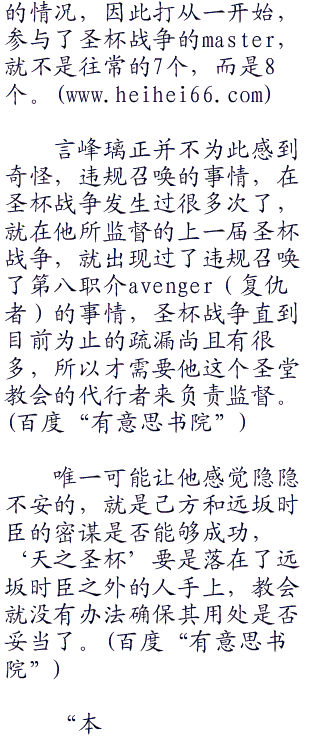 的情况，因此打从一开始，
参与了圣杯战争的master，
就不是往常的7个，而是8
个。(www.heihei66.com)
言峰璃正并不为此感到
奇怪，违规召唤的事情，在
圣杯战争发生过很多次了，
就在他所监督的上一届圣杯
战争，就出现过了违规召唤
了第八职介avenger（复仇
者）的事情，圣杯战争直到
目前为止的疏漏尚且有很
多，所以才需要他这个圣堂
教会的代行者来负责监督。
(百度“有意思书院”)
唯一可能让他感觉隐隐
不安的，就是己方和远坂时
臣的密谋是否能够成功，
‘天之圣杯’要是落在了远
坂时臣之外的人手上，教会
就没有办法确保其用处是否
妥当了。(百度“有意思书
院”)
“本